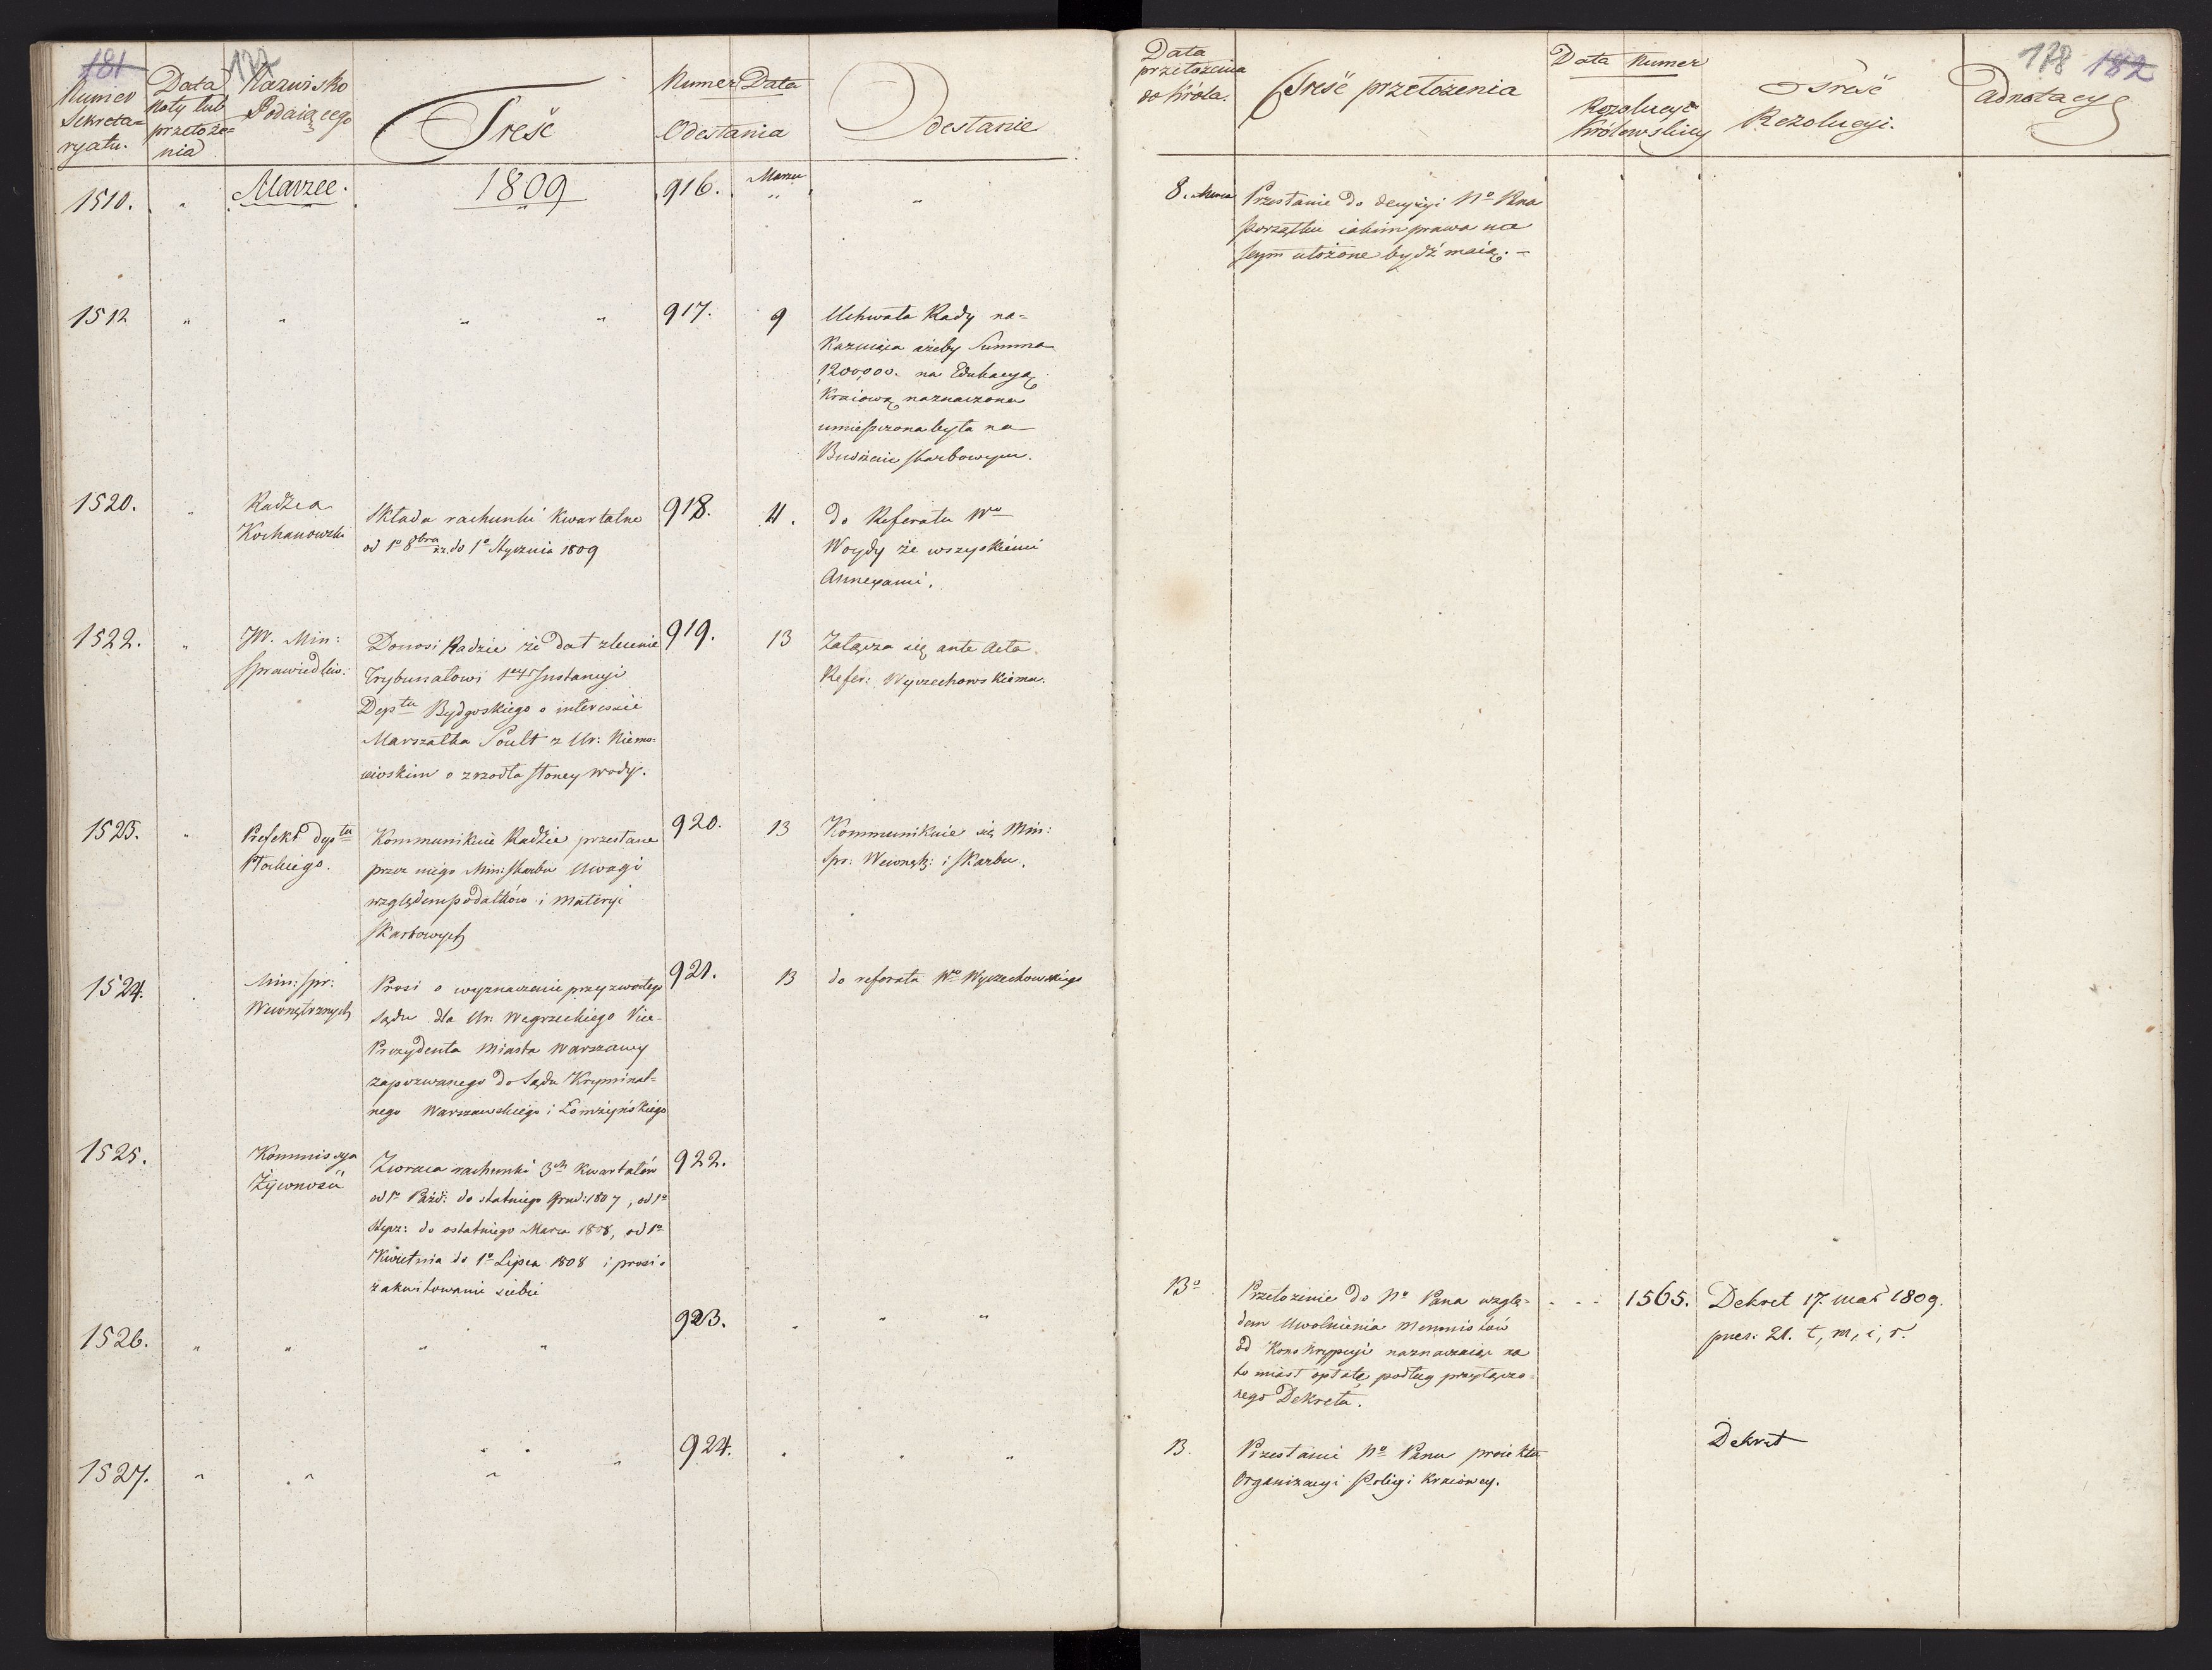 181 177
Numer Sekretaryatu.
Data Noty lub przełożenia
Nazwisko Podaiącego
Treść
Numer Data
Odesłania
Odesłanie
1510.
"
Marzec.
1809
916.
Marzec
"
"
1512 " " " " 917. 9 Uchwała Rady na=
kazuiąca ażeby Summa
1200,000. na Edukacyą
Kraiową naznaczona
umieszczona była na
Budżecie skarbowym.
1520. "
Radzca
Kochanowski
Składa rachunki kwartalne
od 1o 8bra do 1o Stycznia 1809
918. 4. do Referatu Wo
Woydy że wszyskiemi
Annexami.
1522. "
JW. Min:
Sprawiedliw:
Donosi Radzie że dał zlecenie
Trybunałowi 1ey Instancyi
Deptu Bydgoskiego o interessie
Marszałka Soult z Ur: Niemo=
iewskim o zrzodła słoney wody.
919. 13 Załącza się ante acta
Refer: Wyczechowskiemu.
1523. "
Prefekt deptu
Płockiego.
Kommunikuie Radzie przesłane
przez niego Min: Skarbu Uwagi
względem podatków i materyi
skarbowych
920. 13 Kommunikuie się Min:
Spr: Wewnętr: i Skarbu.
1524.
Min: Spr:
Wewnętrznych
Prosi o wyznaczenie przyzwoitego
Sądu dla Ur: Węgrzeckiego Vice-
Prezydenta Miasta Warszawy
zapozwanego do Sądu Kryminal=
nego Warszawskiego i Łomżyńskiego
921. 13 do referatu Wo Wyczechowskiego
1525.
Kommissya
Żywności
Zwraca rachunki 3ch kwartałów
od 1o Paźd: do ostatniego Grud: 1807, od 1o
Stycz: do ostatniego Marca 1808, od 1o
Kwietnia do 1o Lipca 1808 i prosi o
zakwitowanie siebie
922.
1526. " " " " 923. " " "
1527. " " " " 924. " " "
178 182
Data przełożenia do Króla.
Treść przełożenia
Data Numer
Rezolucyi Królewskiey
Treść Rezolucyi.
Adnotacye
8. Marca Przesłanie do decyzyi No Pana
porządku iakim prawa na
seym ułożone bydź maią. –
13o Przełożenie do No Pana wzglę=
dem Uwolnienia Mennonistów
od Konskrypcyi naznaczaiąc na
to miast opłatę podług przyłączo=
nego Dekretu.
1565. Dekret 17. mar 1809.
21. t, m, i, r.
13. Przesłanie No Panu proiektu
Organizacyi Policyi Kraiowey.
Dekret